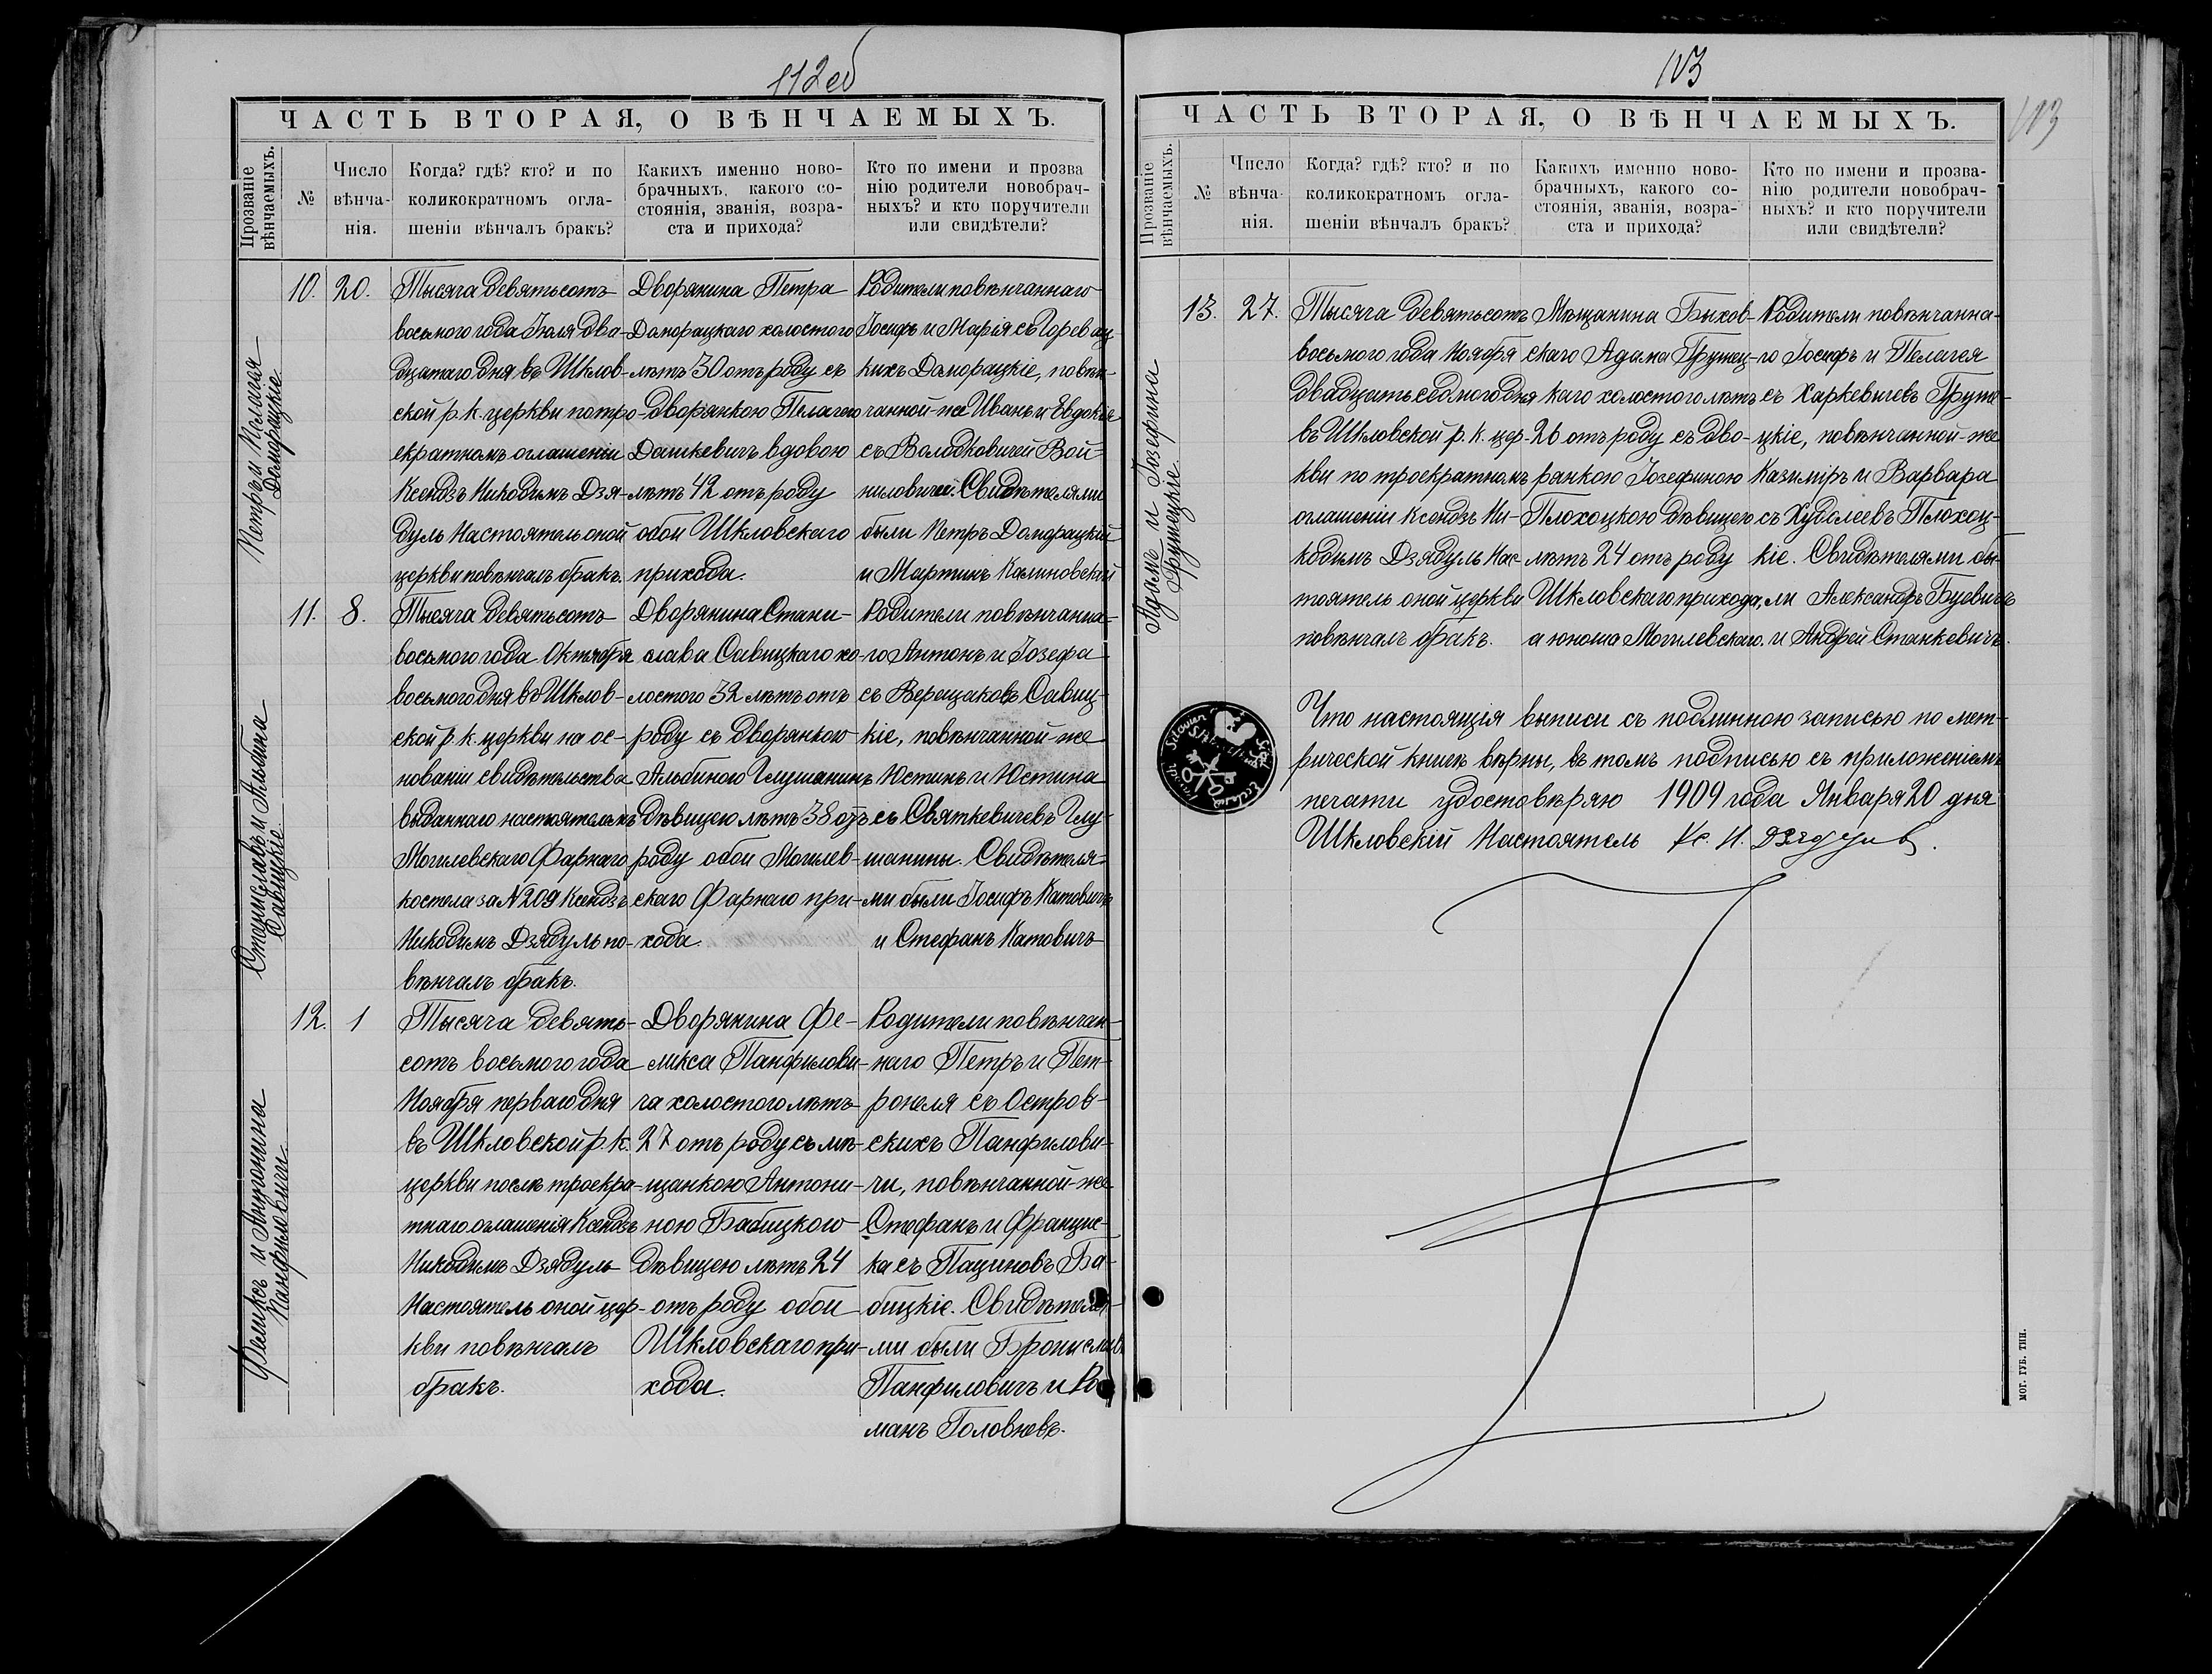 112 об
ЧАСТЬ ВТОРАЯ, О ВѢНЧАЕМЫХЪ.
Прозваніе вѣнчаемыхъ.
№
Число вѣнча-нія.
Когда? гдѣ? кто? и по
коликократномъ огла-
шеніи вѣнчалъ бракъ?
Какихъ именно ново-
брачныхъ, какого со-
стоянія, званія, возра-
ста и прихода?
Кто по имени и прозва
нію родители новобрач-
ныхъ? и кто поручители
или свидѣтели?
Петръ и Пелагія
Домарацкіе
10.
20.
Тысяча девятьсотъ
восьмого года Іюля два-
дцатаго дня въ Шклов-
ской р. к. церкви по тро-
екратномъ оглашеніи
Ксендзъ Никодимъ Дзя-
дуль Настоятель оной
церкви повѣнчалъ бракъ.
Дворянина Петра
Доморацкаго холостого
лѣтъ 30 отъ роду съ
дворянкою Пелагею
Дашкевичъ вдовою
лѣтъ 42 отъ роду
обои Шкловскаго
прихода.
Родители повѣнчаннаго
Іосифъ и Марія съ
кихъ Доморацкіе, повѣн-
чанной-же Иванъ и Евдокія
съ Володковичей Вой-
ниловичи. Свидѣтелями
были Петръ Доморацкій
и Мартинъ Калиновскій
Станиславъ и Альбина
Савицкіе.
11.
8.
Тысяча девятьсотъ
восьмого года Октября
восьмого дня въ Шклов-
ской р. к. церкви на ос-
нованіи свидѣтельства
выданнаго настоятелемъ
Могилевскаго Фарнаго
костела за № 209 Ксендзъ
Никодимъ Дзядуль по-
вѣнчалъ бракъ.
Дворянина Стани-
слава Савицкаго хо-
лостого 32 лѣтъ отъ
роду съ дворянкою
Альбиною Глушанинъ
дѣвицею лѣтъ 38 отъ
роду обои Могилев-
скаго Фарнаго при-
хода.
Родители повѣнчанна-
го Антонъ и Іозефа
съ Верещаковъ Савиц-
кіе, повѣнчанной-же
Юстинъ и Юстина
съ Святкевичевъ Глу-
шанины. Свидѣтеля-
ми были Іосифъ Катовичъ
и Стефанъ Катовичъ
Феликсъ и Антонина
Панфиловичи
12.
1
Тысяча девять-
сотъ восьмого года
Ноября перваго дня
въ Шкловской р. к.
церкви послѣ троекра-
тнаго оглашенія Ксендзъ
Никодимъ Дзядуль
Настоятель оной цер-
кви повѣнчалъ
бракъ.
Дворянина Фе-
ликса Панфилови-
ча холостого лѣтъ
27 отъ роду съ мѣ-
щанкою Антони-
ною Бабицкою
дѣвицею лѣтъ 24
отъ роду обои
Шкловскаго при-
хода.
Родители повѣнчан-
наго Петръ и Пет-
ронеля съ Остров-
скихъ Панфилови-
чи, повѣнчанной-же
Стефанъ и Францис-
ка съ Пациновъ Ба-
бицкіе. Свидѣтеля-
ми были Брониславъ
Панфиловичъ и Ро-
манъ Головневъ.
113
113
ЧАСТЬ ВТОРАЯ, О ВѢНЧАЕМЫХЪ.
Прозваніе вѣнчаемыхъ.
№
Число вѣнча-нія.
Когда? гдѣ? кто? и по
коликократномъ огла-
шеніи вѣнчалъ бракъ?
Какихъ именно ново-
брачныхъ, какого со-
стоянія, званія, возра-
ста и прихода?
Кто по имени и прозва-
нію родители новобрач-
ныхъ? и кто поручители
или свидѣтели?
Адамъ и Іозефина
13.
27.
Тысяча девятьсотъ
восьмого года Ноября
двадцать седмого дня
въ Шкловской р. к. цер-
кви по троекратномъ
оглашеніи Ксендзъ Ни-
кодимъ Дзядуль Нас-
тоятель оной церкви
повѣнчалъ бракъ.
Мѣщанина Быхов-
скаго Адама Грунец-
каго холостого лѣтъ
26 отъ роду съ дво-
рянкою Іозефиною
Плохоцкою дѣвицею
лѣтъ 24 отъ роду
Шкловскаго прихода,
а юноша Могилевскаго.
Родители повѣнчанна-
го Іосифъ и Пелагея
съ Харкевичевъ Груне-
цкіе, повѣнчанной-же
Казиміръ и Варвара
съ Худолеевъ Плохоц-
кіе. Свидѣтелями бы-
ли Александръ Буевичъ
и Андрей Станкевичъ.
Что настоящія выписи съ подлинною записью по мет-
рической книгѣ вѣрны, въ томъ подписью съ приложеніемъ
печати удостовѣряю 1909 года Января 20 дня
Шкловскій Настоятель Кс. Н. Дзядуль.
МОГ. ГУБ. ТИП.